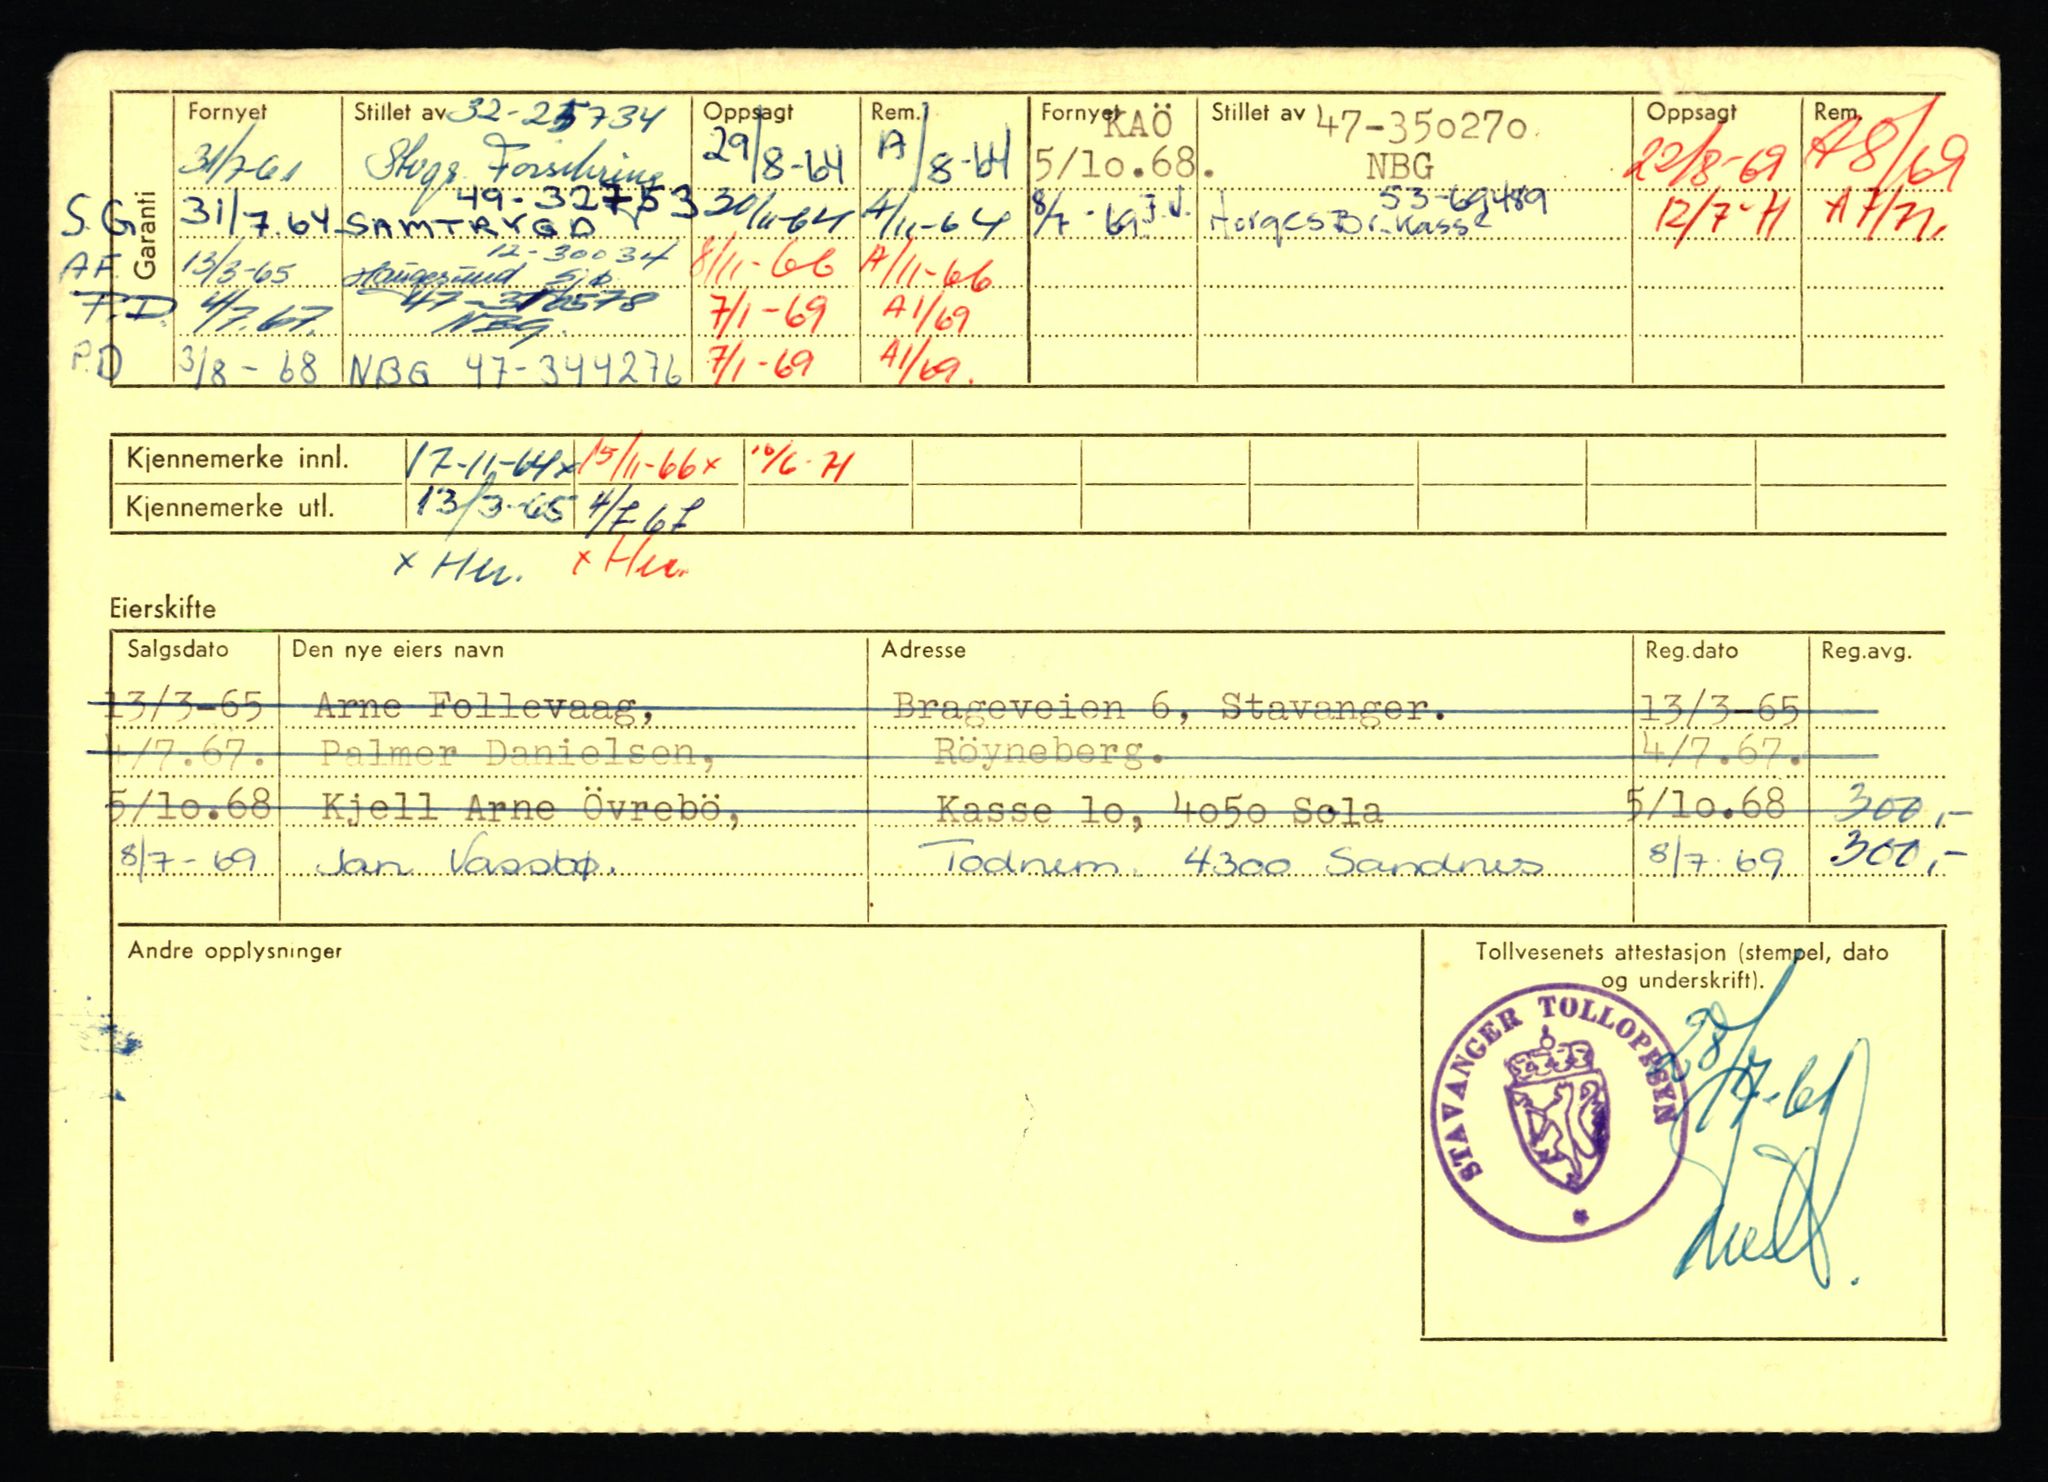 Garanti
Fornyet Stillet av 32-25734 Oppsagt Rem. Fornyet KAÖ Stillet av 47-350270 Oppsagt Rem.
31/7-61 Forsikring 29/8-64 A/8-64 5/10.68. NBG 22/8-69 A 8/69
S.G 31/7.64 49-32753 SAMTRYGD 30/11-64 A/11-64 8/7-69 J.V. 53-69489 12/7-71 A 7/71.
AF 13/3-65 12-30034 Haugesund Sjø 8/11-66 A/11-66
F.D 4/7.67. NBG. 7/1-69 A1/69
P.D 3/8-68 NBG 47-344276 7/1-69 A1/69.
Kjennemerke innl. 17-11-64x 15/11-66x 10/6-71
Kjennemerke utl. 13/3-65 4/7 67
x Hu. x Hu.
Eierskifte
Salgsdato Den nye eiers navn Adresse Reg.dato Reg.avg.
13/3-65 Arne Follevaag, Brageveien 6, Stavanger. 13/3-65
4/7.67. Palmer Danielsen, Röyneberg. 4/7.67.
5/10.68 Kjell Arne Övrebö, Kasse 10, 4050 Sola 5/10.68 300,-
8/7-69 Jan Vassbø. Todnem. 4300 Sandnes 8/7.69 300,-
Andre opplysninger
Tollvesenets attestasjon (stempel, dato
og underskrift).
STAVANGER TOLLOPPSYN
28/7-61